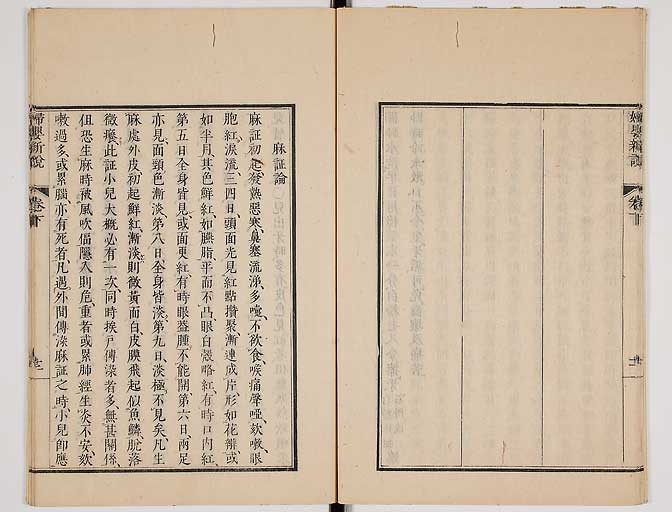 婦嬰新說
卷下
麻証論
麻証初起發熱惡寒鼻塞流涕多嚏不飲食喉痛聲啞欬嗽眼
胞紅淚流三四日頭面先見紅點攢聚漸連成片形如花瓣或
如半月其色鮮紅如臙脂平而不凸眼白殼略紅有時口內紅
第五日全身皆見或面更紅有時眼蓋腫不能開第六日兩足
亦見面頸色漸淡第八日全身皆淡第九日淡極不見矣凡生
麻處外皮初起鮮紅漸淡則微黃而白皮膜飛起似魚鱗脫落
微癢此証小兒大概必有一次同時挨戶傳染者多無甚關係
但恐生麻時被風吹傷隱入則危重者或累肺經生炎不安欬
嗽過多或累腦亦有死者凡遇外間傳染麻証之時小兒卽應
婦嬰新說
卷下